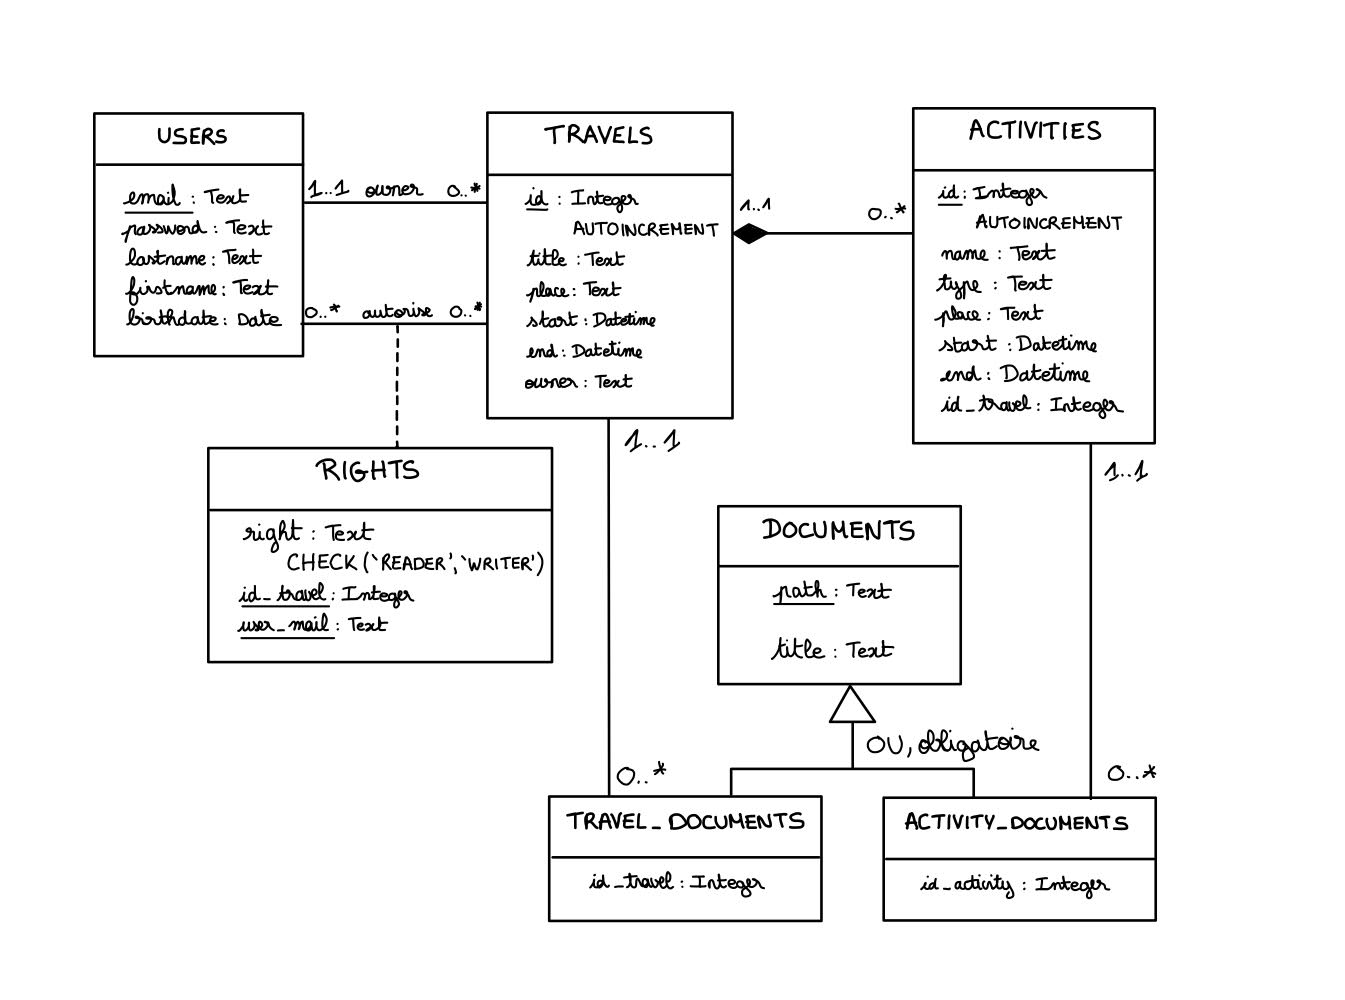 USERS
email : Text
password : Text
lastname : Text
firstname : Text
birthdate : Date
1..1 owner 0..*
0..* autorise 0..*
TRAVELS
id : Integer
AUTOINCREMENT
title : Text
place : Text
start : Datetime
end : Datetime
owner : Text
1..1
0..*
ACTIVITIES
id : Integer
AUTOINCREMENT
name : Text
type : Text
place : Text
start : Datetime
end : Datetime
id_travel : Integer
1..1
1..1
RIGHTS
right : Text
CHECK (`READER', `WRITER')
id_travel : Integer
user_mail : Text
DOCUMENTS
path : Text
title : Text
OU, obligatoire
0..*
0..*
TRAVEL_DOCUMENTS
id_travel : Integer
ACTIVITY_DOCUMENTS
id_activity : Integer